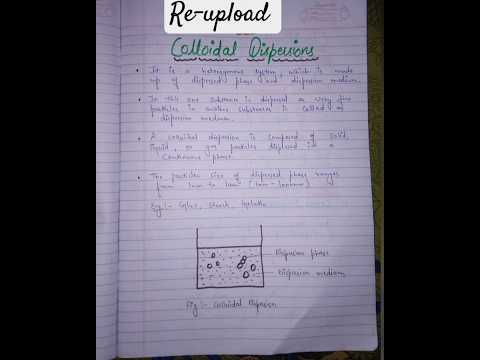 Re-upload
Colloidal Dispersions
It is a heterogenous system, which is made
up of dispersed phase and dispersion medium.
In this one substance is dispersed as very fine
particles in another substance is called as
dispersion medium.
A colloidal dispersion is composed of solid,
liquid, or gas particles dispersed in a
continuous phase.
The particles size of dispersed phase ranges
from 1nm to 1um (1nm - 1000nm)
Eg:- Glue, Starch, Gelatin
Dispersion phase
Dispersion medium
Fig:- Colloidal Dispersion